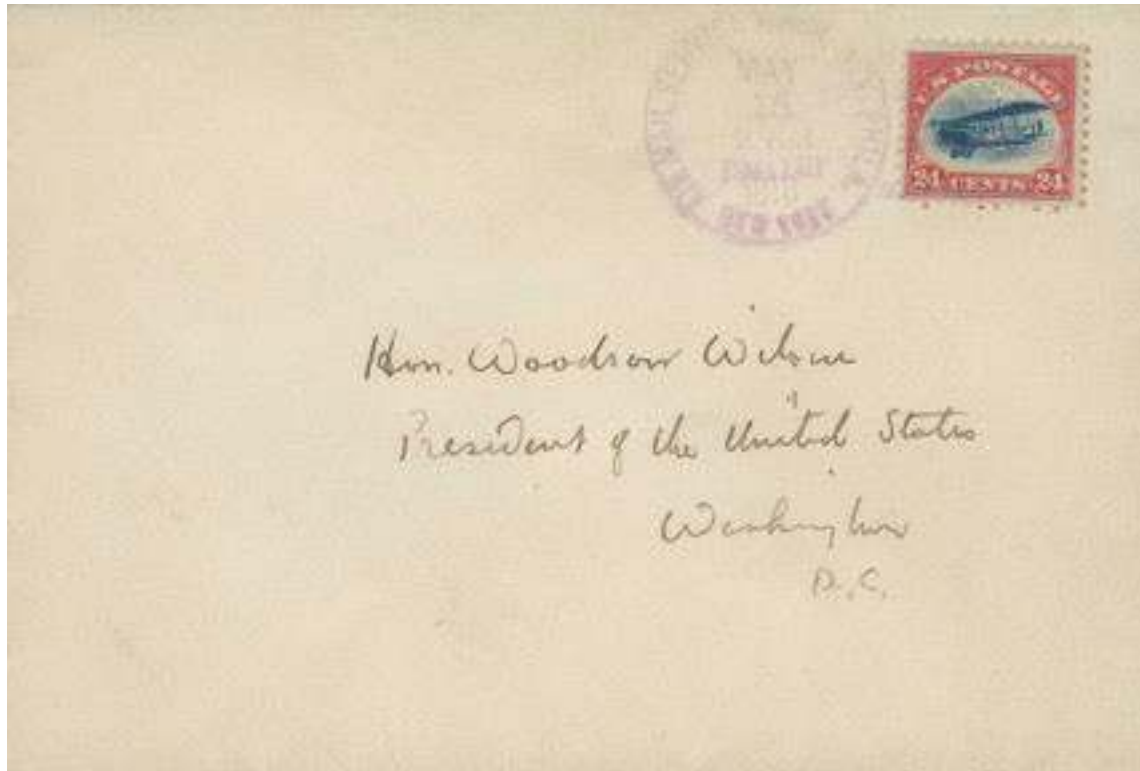 MAY
U.S. POSTAGE
24 CENTS 24
Hon. Woodrow Wilson
President of the United States
Washington
D.C.